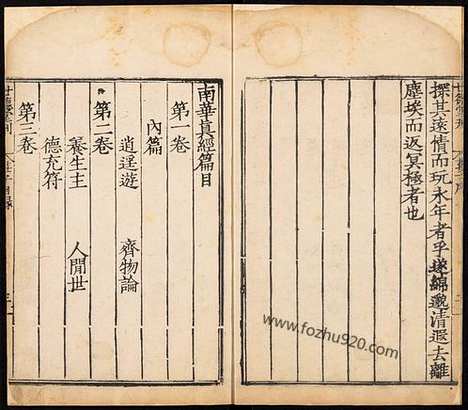 探其遠情而玩永年者乎遂綿邈清遐去離
塵埃而返冥極者也
南華真經篇目
第一卷
內篇
逍遥遊 齊物論
第二卷
養生主 人閒世
第三卷
德充符
www.fozhu920.com